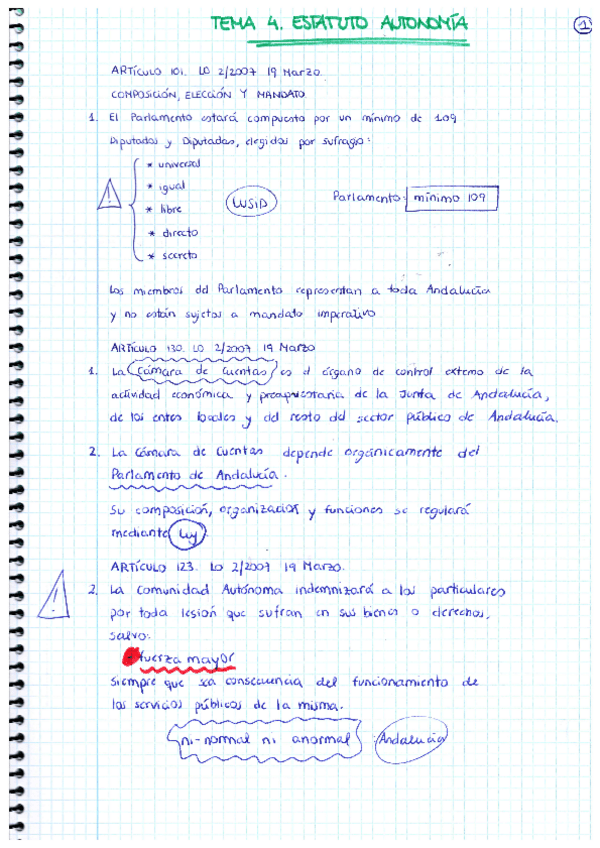 TEMA 4. ESTATUTO AUTONOMÍA
1
ARTÍCULO 101. LO 2/2007 19 Marzo.
COMPOSICIÓN, ELECCIÓN Y MANDATO
1. El Parlamento estará compuesto por un mínimo de 109
Diputados y Diputadas, elegidos por sufragio:
* universal
* igual
* libre
* directo
* secreto
LUSID
Parlamento: mínimo 109
Los miembros del Parlamento representan a toda Andalucía
y no están sujetos a mandato imperativo
ARTÍCULO 130. LO 2/2007 19 Marzo
1. La Cámara de Cuentas es el órgano de control externo de la
actividad económica y presupuestaria de la Junta de Andalucía,
de los entes locales y del resto del sector público de Andalucía.
2. La Cámara de Cuentas depende orgánicamente del
Parlamento de Andalucía.
Su composición, organización y funciones se regulará
mediante Ley
ARTÍCULO 123. LO 2/2007 19 Marzo.
2. La Comunidad Autónoma indemnizará a los particulares
por toda lesión que sufran en sus bienes o derechos,
salvo:
fuerza mayor
siempre que sea consecuencia del funcionamiento de
los servicios públicos de la misma.
ni-normal ni anormal : Andalucía